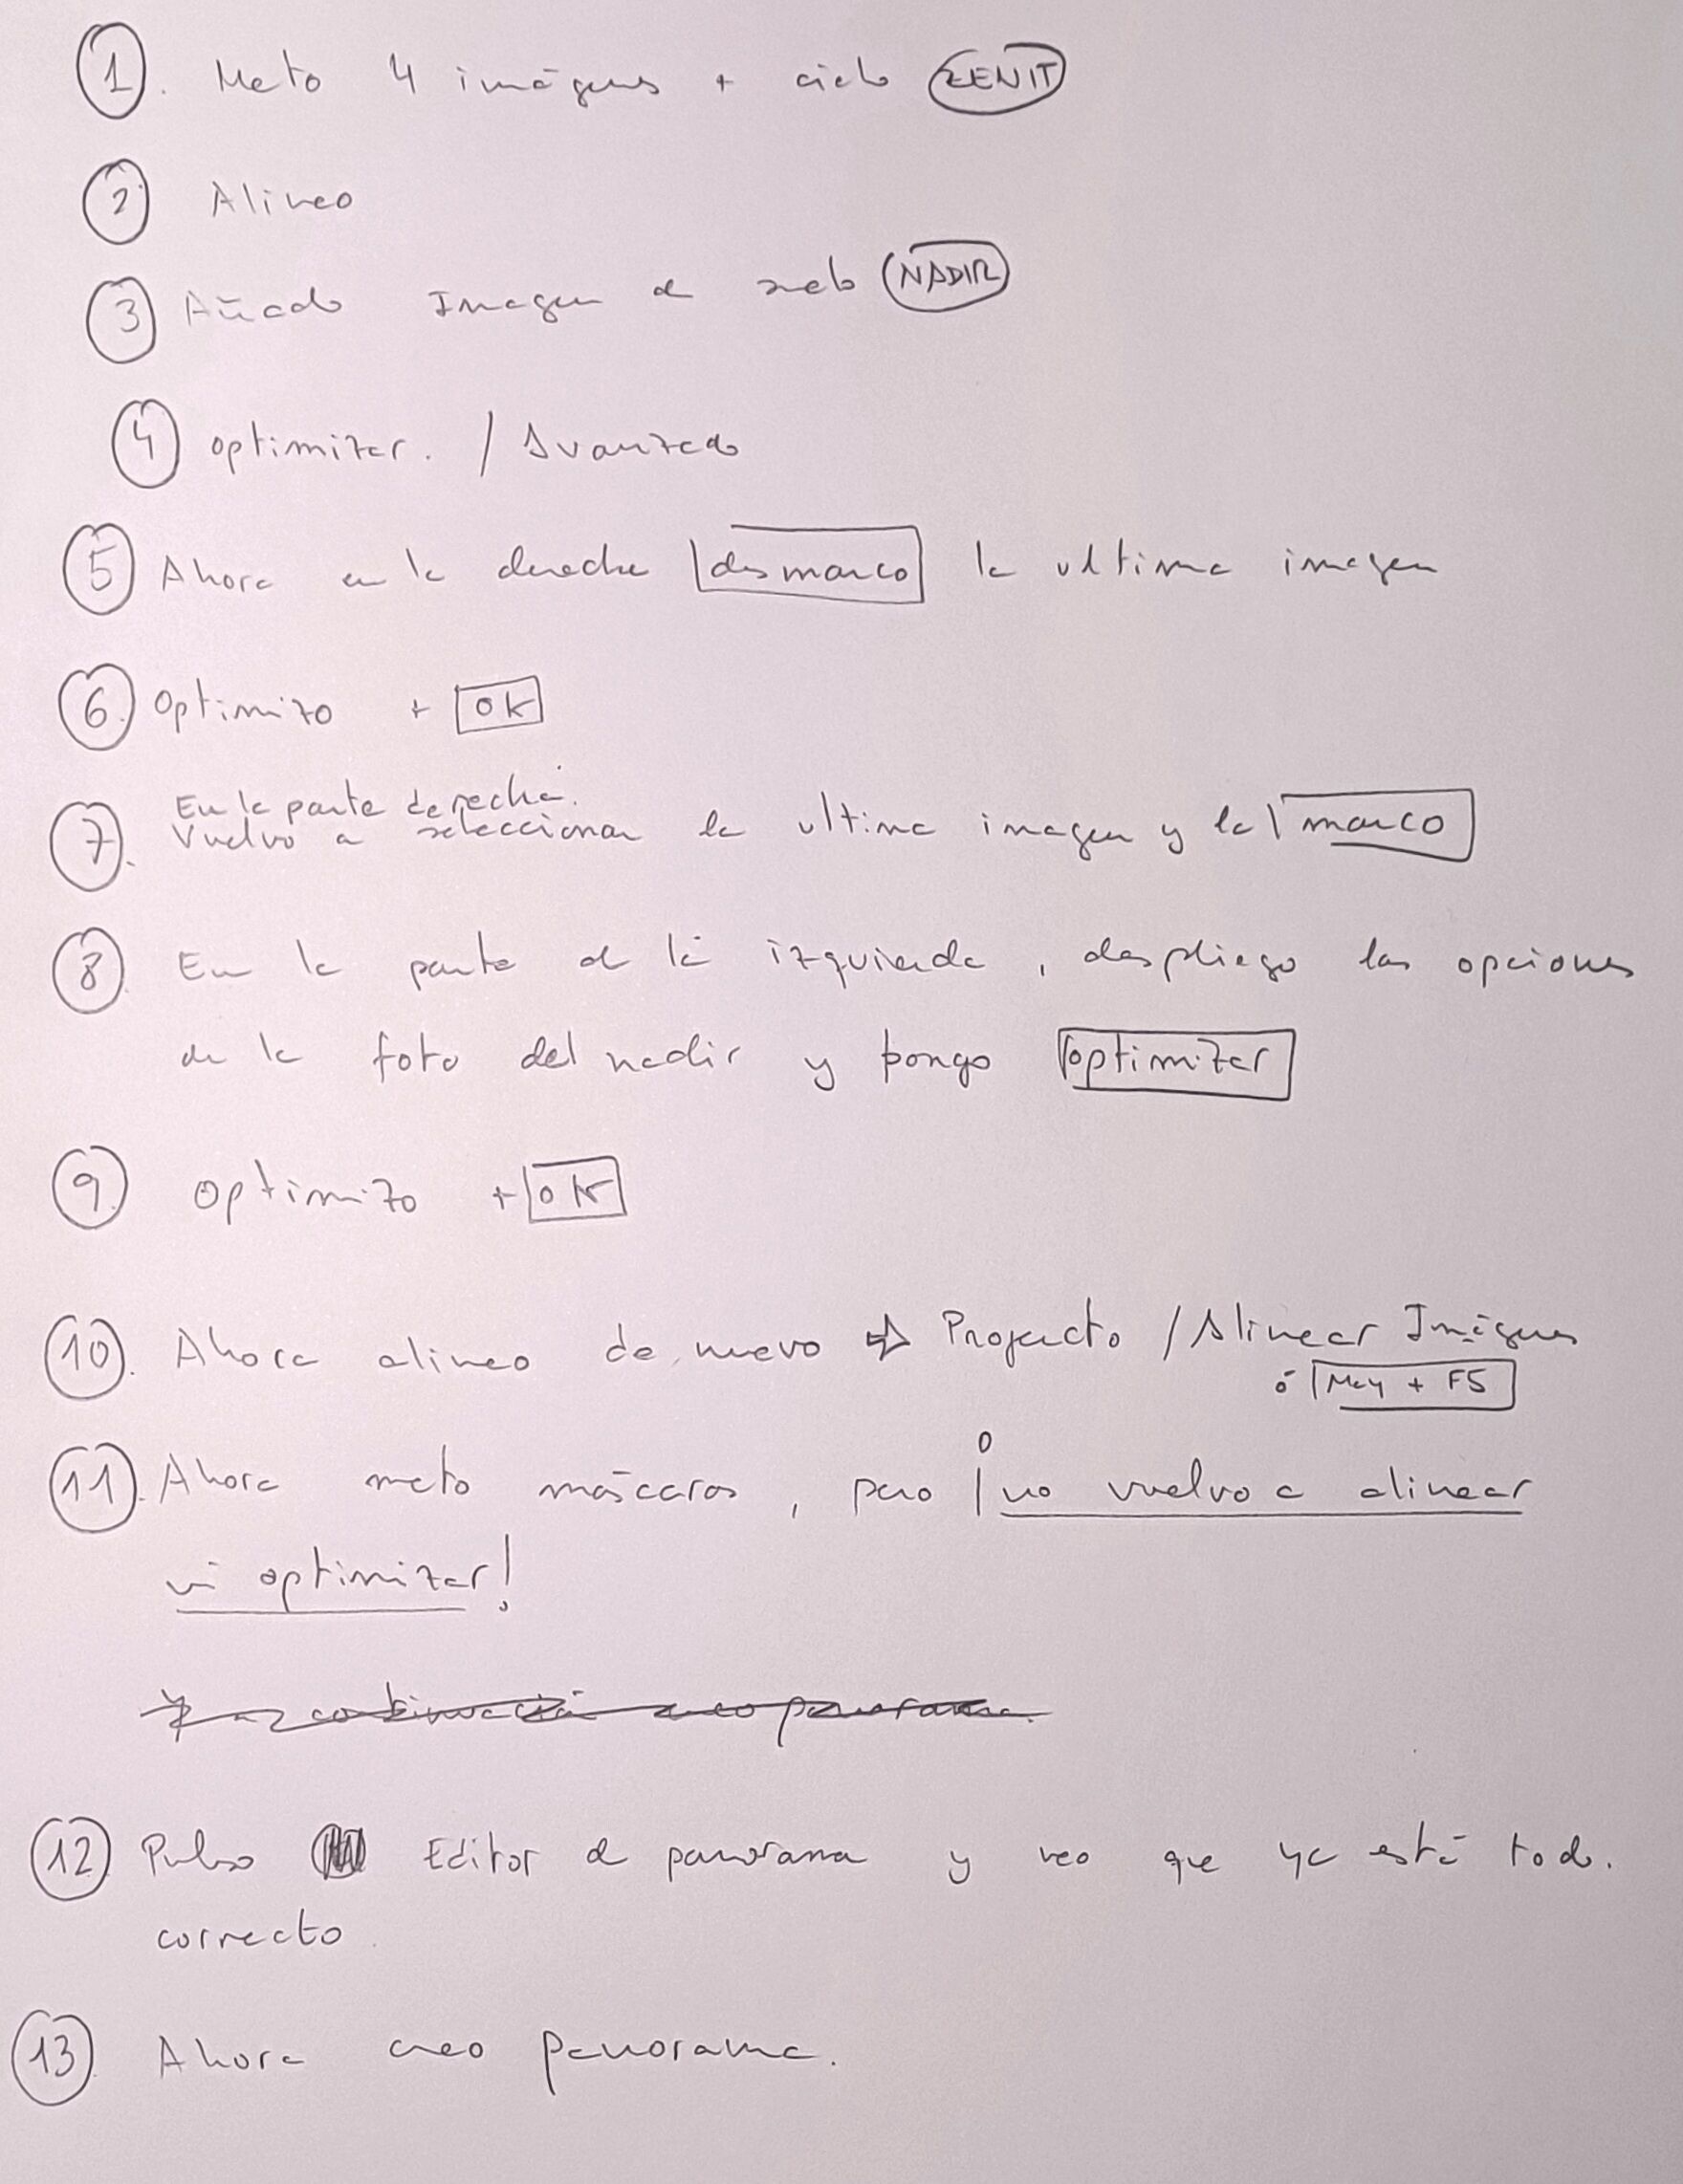 1. Meto 4 imágenes + cielo ZENIT
2. Alineo
3 Añado Imagen de suelo NADIR
4 optimizar. / Avanzado
5 Ahora en la derecha desmarco la ultima imagen
6. Optimizo + OK
En la parte derecha.
7. Vuelvo a seleccionar la ultima imagen y la marco
8. En la parte de la izquierda, despliego las opciones
de la foto del nadir y pongo optimizar
9. Optimizo + OK
10. Ahora alineo de nuevo ⇒ Proyecto / Alinear Imágenes
ó May + F5
11. Ahora meto máscaras, pero ¡no vuelvo a alinear
ni optimizar!
y a continuación creo panorama.
12 Pulso Editor de panorama y veo que ya está todo.
correcto.
13. Ahora creo panorama.